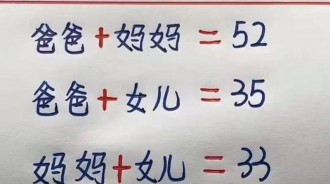 爸爸+妈妈=52
爸爸+女儿=35
妈妈+女儿=33